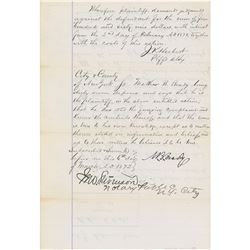 Wherefore plaintiff demands judgment
against the defendant for the sum of five
hundred and sixty nine dollars & interest
from the 2nd day of February A.D. 1873 together
with the costs of this action.
J. Herbert
Plffs Atty
City & County
of New York ss. Mathew B. Brady being
duly sworn deposes and says that he is
the plaintiff in the above entitled action,
that he has read the foregoing Complaint and
knows the contents thereof and that the same
is true to his own knowledge except as to
matters stated on information and belief and
as to those matters he believes it to be true
Subscribed & Sworn to
before me this 6th day
of March A.D. 1873
M.B. Brady
Notary Public
N.Y. City